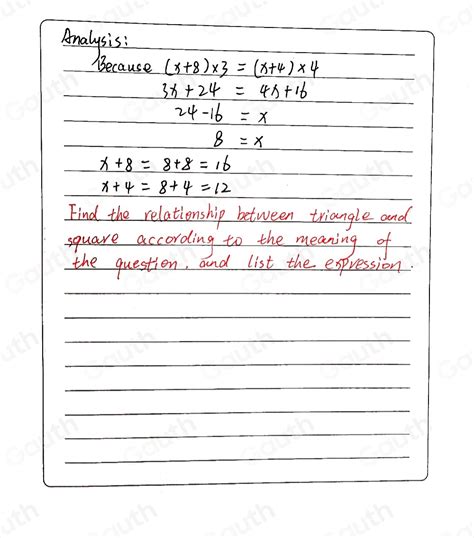 Analysis:
Because (x+8)×3 = (x+4)×4
3x+24 = 4x+16
24-16 = x
8 = x
x+8 = 8+8 = 16
x+4 = 8+4 = 12
Find the relationship between triangle and
square according to the meaning of
the question, and list the expression.